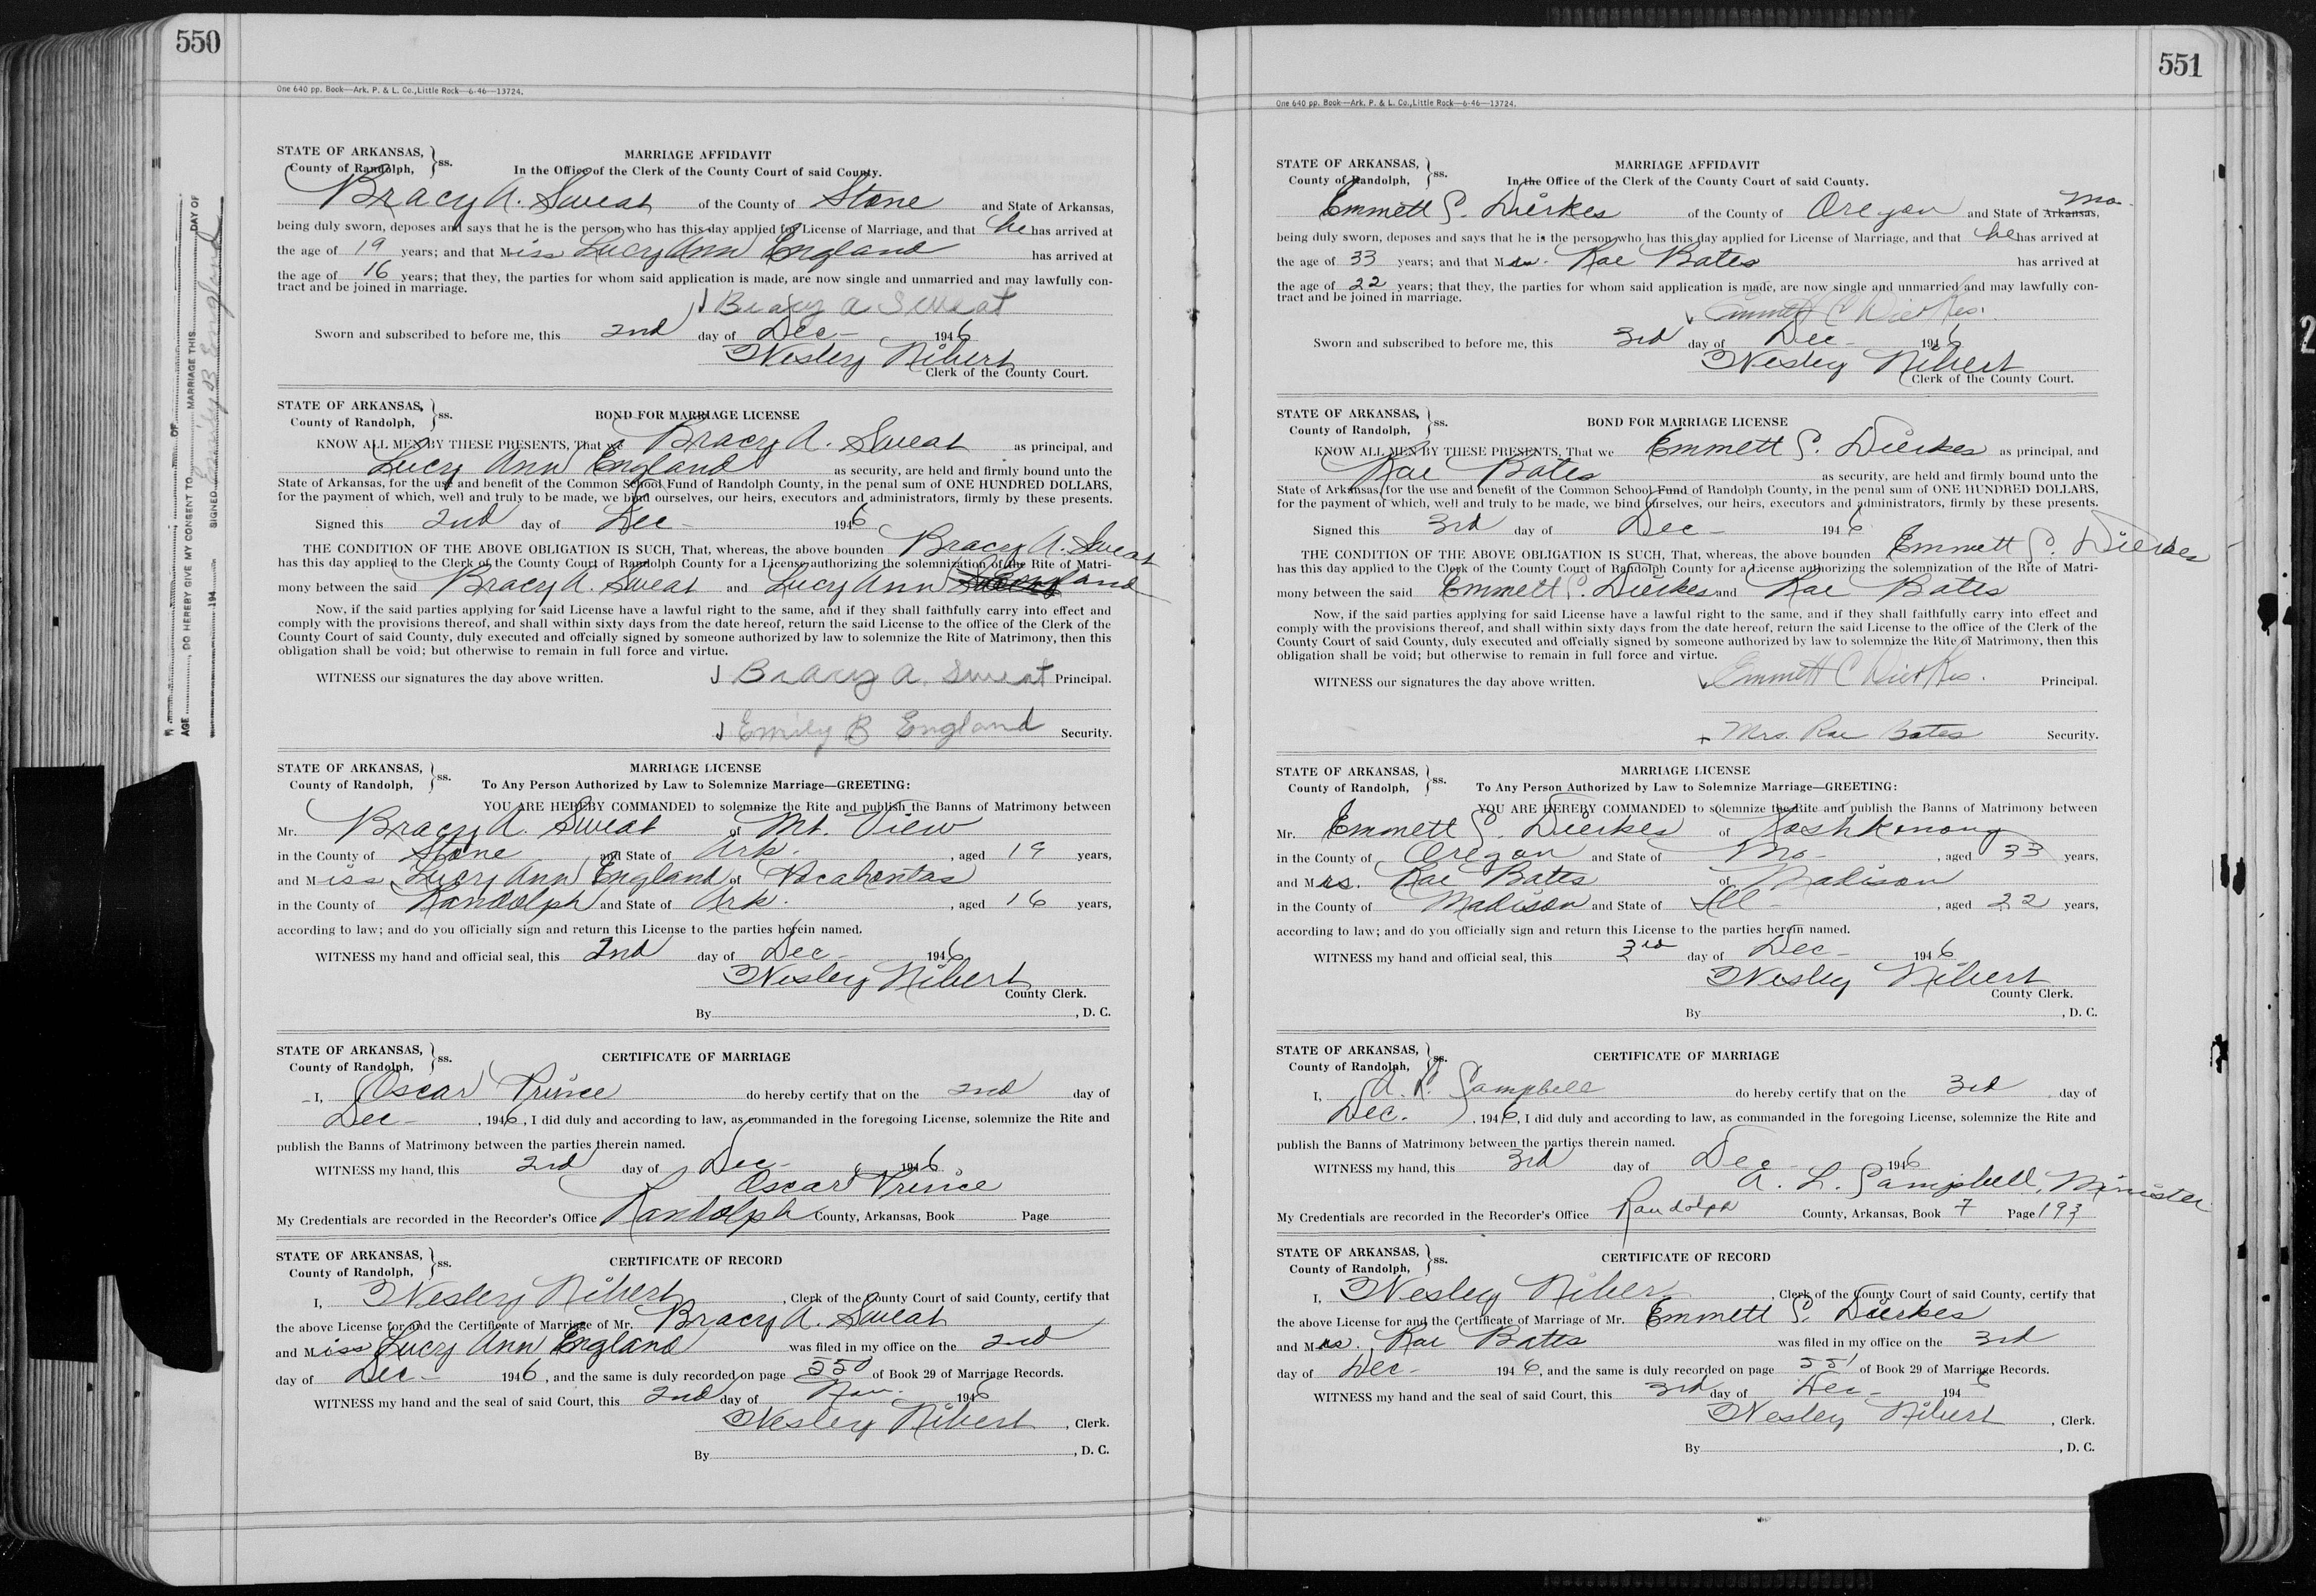 550
One 640 pp. Book—Ark. P. & L. Co., Little Rock—6-46—13724.
AGE , DO HEREBY GIVE MY CONSENT TO MARRIAGE THIS DAY OF
194 SIGNED Emily B England
STATE OF ARKANSAS, County of Randolph, ss.
MARRIAGE AFFIDAVIT
In the Office of the Clerk of the County Court of said County.
Bracy A. Sweat of the County of Stone and State of Arkansas,
being duly sworn, deposes and says that he is the person who has this day applied for License of Marriage, and that he has arrived at
the age of 19 years; and that Miss Lucy Ann England has arrived at
the age of 16 years; that they, the parties for whom said application is made, are now single and unmarried and may lawfully con-
tract and be joined in marriage.
Bracy A Sweat
Sworn and subscribed to before me, this 2nd day of Dec- 1946
Wesley Nibert
Clerk of the County Court.
STATE OF ARKANSAS, County of Randolph, ss.
BOND FOR MARRIAGE LICENSE
KNOW ALL MEN BY THESE PRESENTS, That we Bracy A. Sweat as principal, and
Lucy Ann England as security, are held and firmly bound unto the
State of Arkansas, for the use and benefit of the Common School Fund of Randolph County, in the penal sum of ONE HUNDRED DOLLARS,
for the payment of which, well and truly to be made, we bind ourselves, our heirs, executors and administrators, firmly by these presents.
Signed this 2nd day of Dec- 1946
THE CONDITION OF THE ABOVE OBLIGATION IS SUCH, That, whereas, the above bounden Bracy A. Sweat
has this day applied to the Clerk of the County Court of Randolph County for a License authorizing the solemnization of the Rite of Matri-
mony between the said Bracy A. Sweat and Lucy Ann England
Now, if the said parties applying for said License have a lawful right to the same, and if they shall faithfully carry into effect and
comply with the provisions thereof, and shall within sixty days from the date hereof, return the said License to the office of the Clerk of the
County Court of said County, duly executed and offcially signed by someone authorized by law to solemnize the Rite of Matrimony, then this
obligation shall be void; but otherwise to remain in full force and virtue.
WITNESS our signatures the day above written. Bracy A. Sweat Principal.
Emily B England Security.
STATE OF ARKANSAS, County of Randolph, ss.
MARRIAGE LICENSE
To Any Person Authorized by Law to Solemnize Marriage—GREETING:
YOU ARE HEREBY COMMANDED to solemnize the Rite and publish the Banns of Matrimony between
Mr. Bracy A. Sweat of Mt. View
in the County of Stone and State of Ark. , aged 19 years,
and Miss Lucy Ann England of Pocahontas
in the County of Randolph and State of Ark. , aged 16 years,
according to law; and do you officially sign and return this License to the parties herein named.
WITNESS my hand and official seal, this 2nd day of Dec- 1946
Wesley Nibert
County Clerk.
By , D. C.
STATE OF ARKANSAS, County of Randolph, ss.
CERTIFICATE OF MARRIAGE
I, Oscar Prince do hereby certify that on the 2nd day of
Dec- , 1946, I did duly and according to law, as commanded in the foregoing License, solemnize the Rite and
publish the Banns of Matrimony between the parties therein named.
WITNESS my hand, this 2nd day of Dec- 1946
Oscar Prince
My Credentials are recorded in the Recorder's Office Randolph County, Arkansas, Book Page
STATE OF ARKANSAS, County of Randolph, ss.
CERTIFICATE OF RECORD
I, Wesley Nibert , Clerk of the County Court of said County, certify that
the above License for and the Certificate of Marriage of Mr. Bracy A. Sweat
and Miss Lucy Ann England was filed in my office on the 2nd
day of Dec- 1946, and the same is duly recorded on page 550 of Book 29 of Marriage Records.
WITNESS my hand and the seal of said Court, this 2nd day of Nov. 1946
Wesley Nibert , Clerk.
By , D. C.
551
One 640 pp. Book—Ark. P. & L. Co., Little Rock—6-46—13724.
STATE OF ARKANSAS, County of Randolph, ss.
MARRIAGE AFFIDAVIT
In the Office of the Clerk of the County Court of said County.
Emmett C. Dierkes of the County of Oregon and State of Arkansas, Mo-
being duly sworn, deposes and says that he is the person who has this day applied for License of Marriage, and that he has arrived at
the age of 33 years; and that Mrs. Rae Bates has arrived at
the age of 22 years; that they, the parties for whom said application is made, are now single and unmarried and may lawfully con-
tract and be joined in marriage.
Emmett C Dierkes.
Sworn and subscribed to before me, this 3rd day of Dec- 1946
Wesley Nibert
Clerk of the County Court.
STATE OF ARKANSAS, County of Randolph, ss.
BOND FOR MARRIAGE LICENSE
KNOW ALL MEN BY THESE PRESENTS, That we Emmett C. Dierkes as principal, and
Rae Bates as security, are held and firmly bound unto the
State of Arkansas, for the use and benefit of the Common School Fund of Randolph County, in the penal sum of ONE HUNDRED DOLLARS,
for the payment of which, well and truly to be made, we bind ourselves, our heirs, executors and administrators, firmly by these presents.
Signed this 3rd day of Dec- 1946
THE CONDITION OF THE ABOVE OBLIGATION IS SUCH, That, whereas, the above bounden Emmett C. Dierkes
has this day applied to the Clerk of the County Court of Randolph County for a License authorizing the solemnization of the Rite of Matri-
mony between the said Emmett C. Dierkes and Rae Bates
Now, if the said parties applying for said License have a lawful right to the same, and if they shall faithfully carry into effect and
comply with the provisions thereof, and shall within sixty days from the date hereof, return the said License to the office of the Clerk of the
County Court of said County, duly executed and offcially signed by someone authorized by law to solemnize the Rite of Matrimony, then this
obligation shall be void; but otherwise to remain in full force and virtue.
WITNESS our signatures the day above written. Emmett C Dierkes. Principal.
Mrs. Rae Bates Security.
STATE OF ARKANSAS, County of Randolph, ss.
MARRIAGE LICENSE
To Any Person Authorized by Law to Solemnize Marriage—GREETING:
YOU ARE HEREBY COMMANDED to solemnize the Rite and publish the Banns of Matrimony between
Mr. Emmett C. Dierkes of Koshkonong
in the County of Oregon and State of Mo- , aged 33 years,
and Mrs. Rae Bates of Madison
in the County of Madison and State of Ill- , aged 22 years,
according to law; and do you officially sign and return this License to the parties herein named.
WITNESS my hand and official seal, this 3rd day of Dec- 1946
Wesley Nibert
County Clerk.
By , D. C.
STATE OF ARKANSAS, County of Randolph, ss.
CERTIFICATE OF MARRIAGE
I, A. L. Campbell do hereby certify that on the 3rd day of
Dec. , 1946, I did duly and according to law, as commanded in the foregoing License, solemnize the Rite and
publish the Banns of Matrimony between the parties therein named.
WITNESS my hand, this 3rd day of Dec- 1946
A. L. Campbell, Minister
My Credentials are recorded in the Recorder's Office Randolph County, Arkansas, Book 7 Page 193
STATE OF ARKANSAS, County of Randolph, ss.
CERTIFICATE OF RECORD
I, Wesley Nibert , Clerk of the County Court of said County, certify that
the above License for and the Certificate of Marriage of Mr. Emmett C. Dierkes
and Mrs. Rae Bates was filed in my office on the 3rd
day of Dec- 1946, and the same is duly recorded on page 551 of Book 29 of Marriage Records.
WITNESS my hand and the seal of said Court, this 3rd day of Dec- 1946
Wesley Nibert , Clerk.
By , D. C.
2